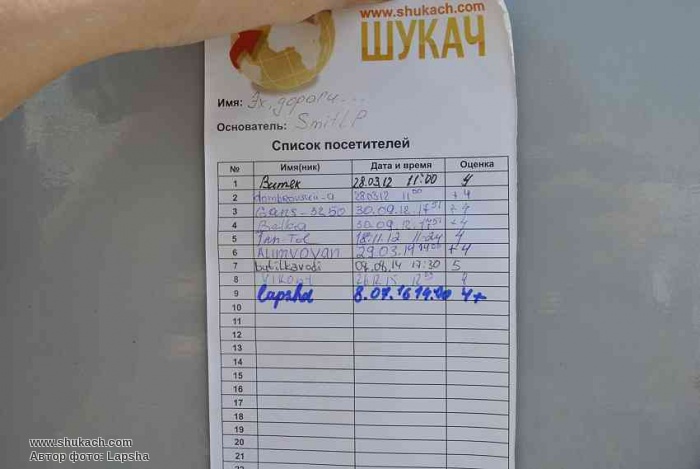 www.shukach.com
ШУКАЧ
Имя: Эх, дороги...
Основатель: SmitLP
Список посетителей
№ Имя(ник) Дата и время Оценка
1 Витек 28.03.12 11:00 4
2 28.03.12 11 00 +4
3 Gans-3250 30.09.12 17 51 +4
4 Belka 30.09.12 17 51 +4
5 Tan-Tol 18.11.12 11-24 4
6 ALIMVOVAN 29.03.14 +4
7 butilkavodi 09.08.14 17:30 5
8 Vikont 4
9 Lapsha 8.07.16 14:00 4+
10
11
12
13
14
15
16
17
18
19
20
21
www.shukach.com
Автор фото: Lapsha